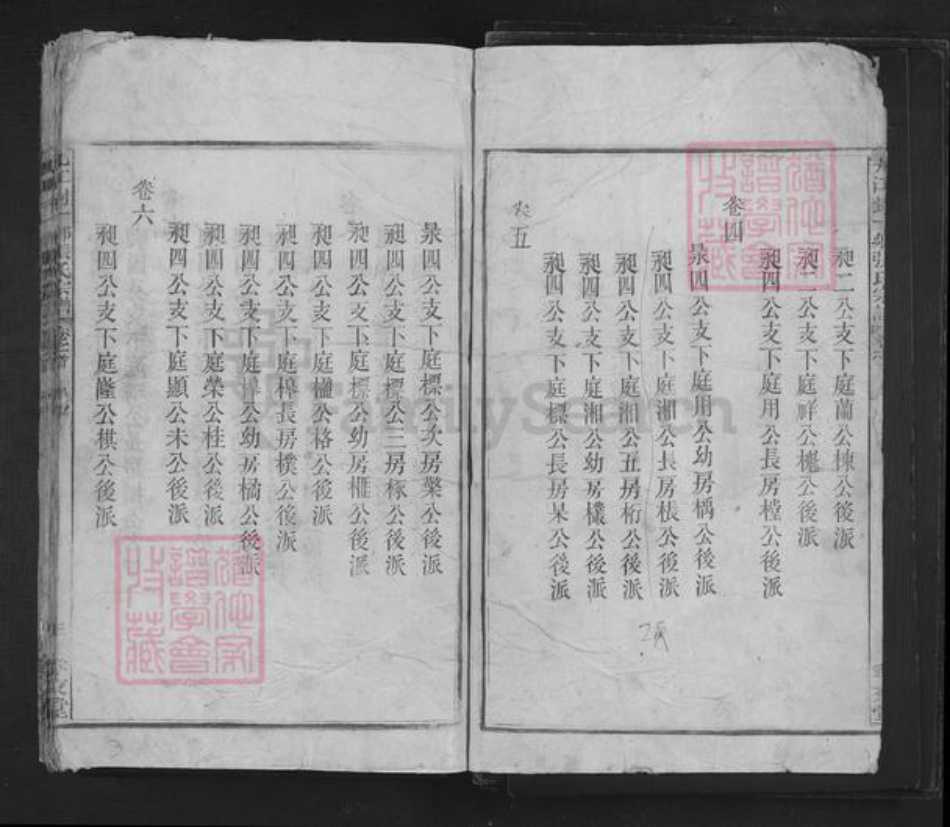 昶二公支下庭蘭公棟公後派
昶二公支下庭祥公槐公後派
昶四公支下庭用公長房樘公後派
卷四
昶四公支下庭用公幼房楀公後派
昶四公支下庭湘公長房棖公後派
昶四公支下庭湘公五房桁公後派
昶四公支下庭湘公幼房欉公後派
昶四公支下庭標公長房杲公後派
卷五
昶四公支下庭標公次房藥公後派
昶四公支下庭標公三房椓公後派
昶四公支下庭標公幼房榧公後派
昶四公支下庭楹公格公後派
昶四公支下庭樟長房樸公後派
昶四公支下庭樟公幼房橘公後派
昶四公支下庭榮公桂公後派
昶四公支下庭顯公未公後派
卷六
昶四公支下庭隆公棋公後派
譜學會
收藏
FamilySearch